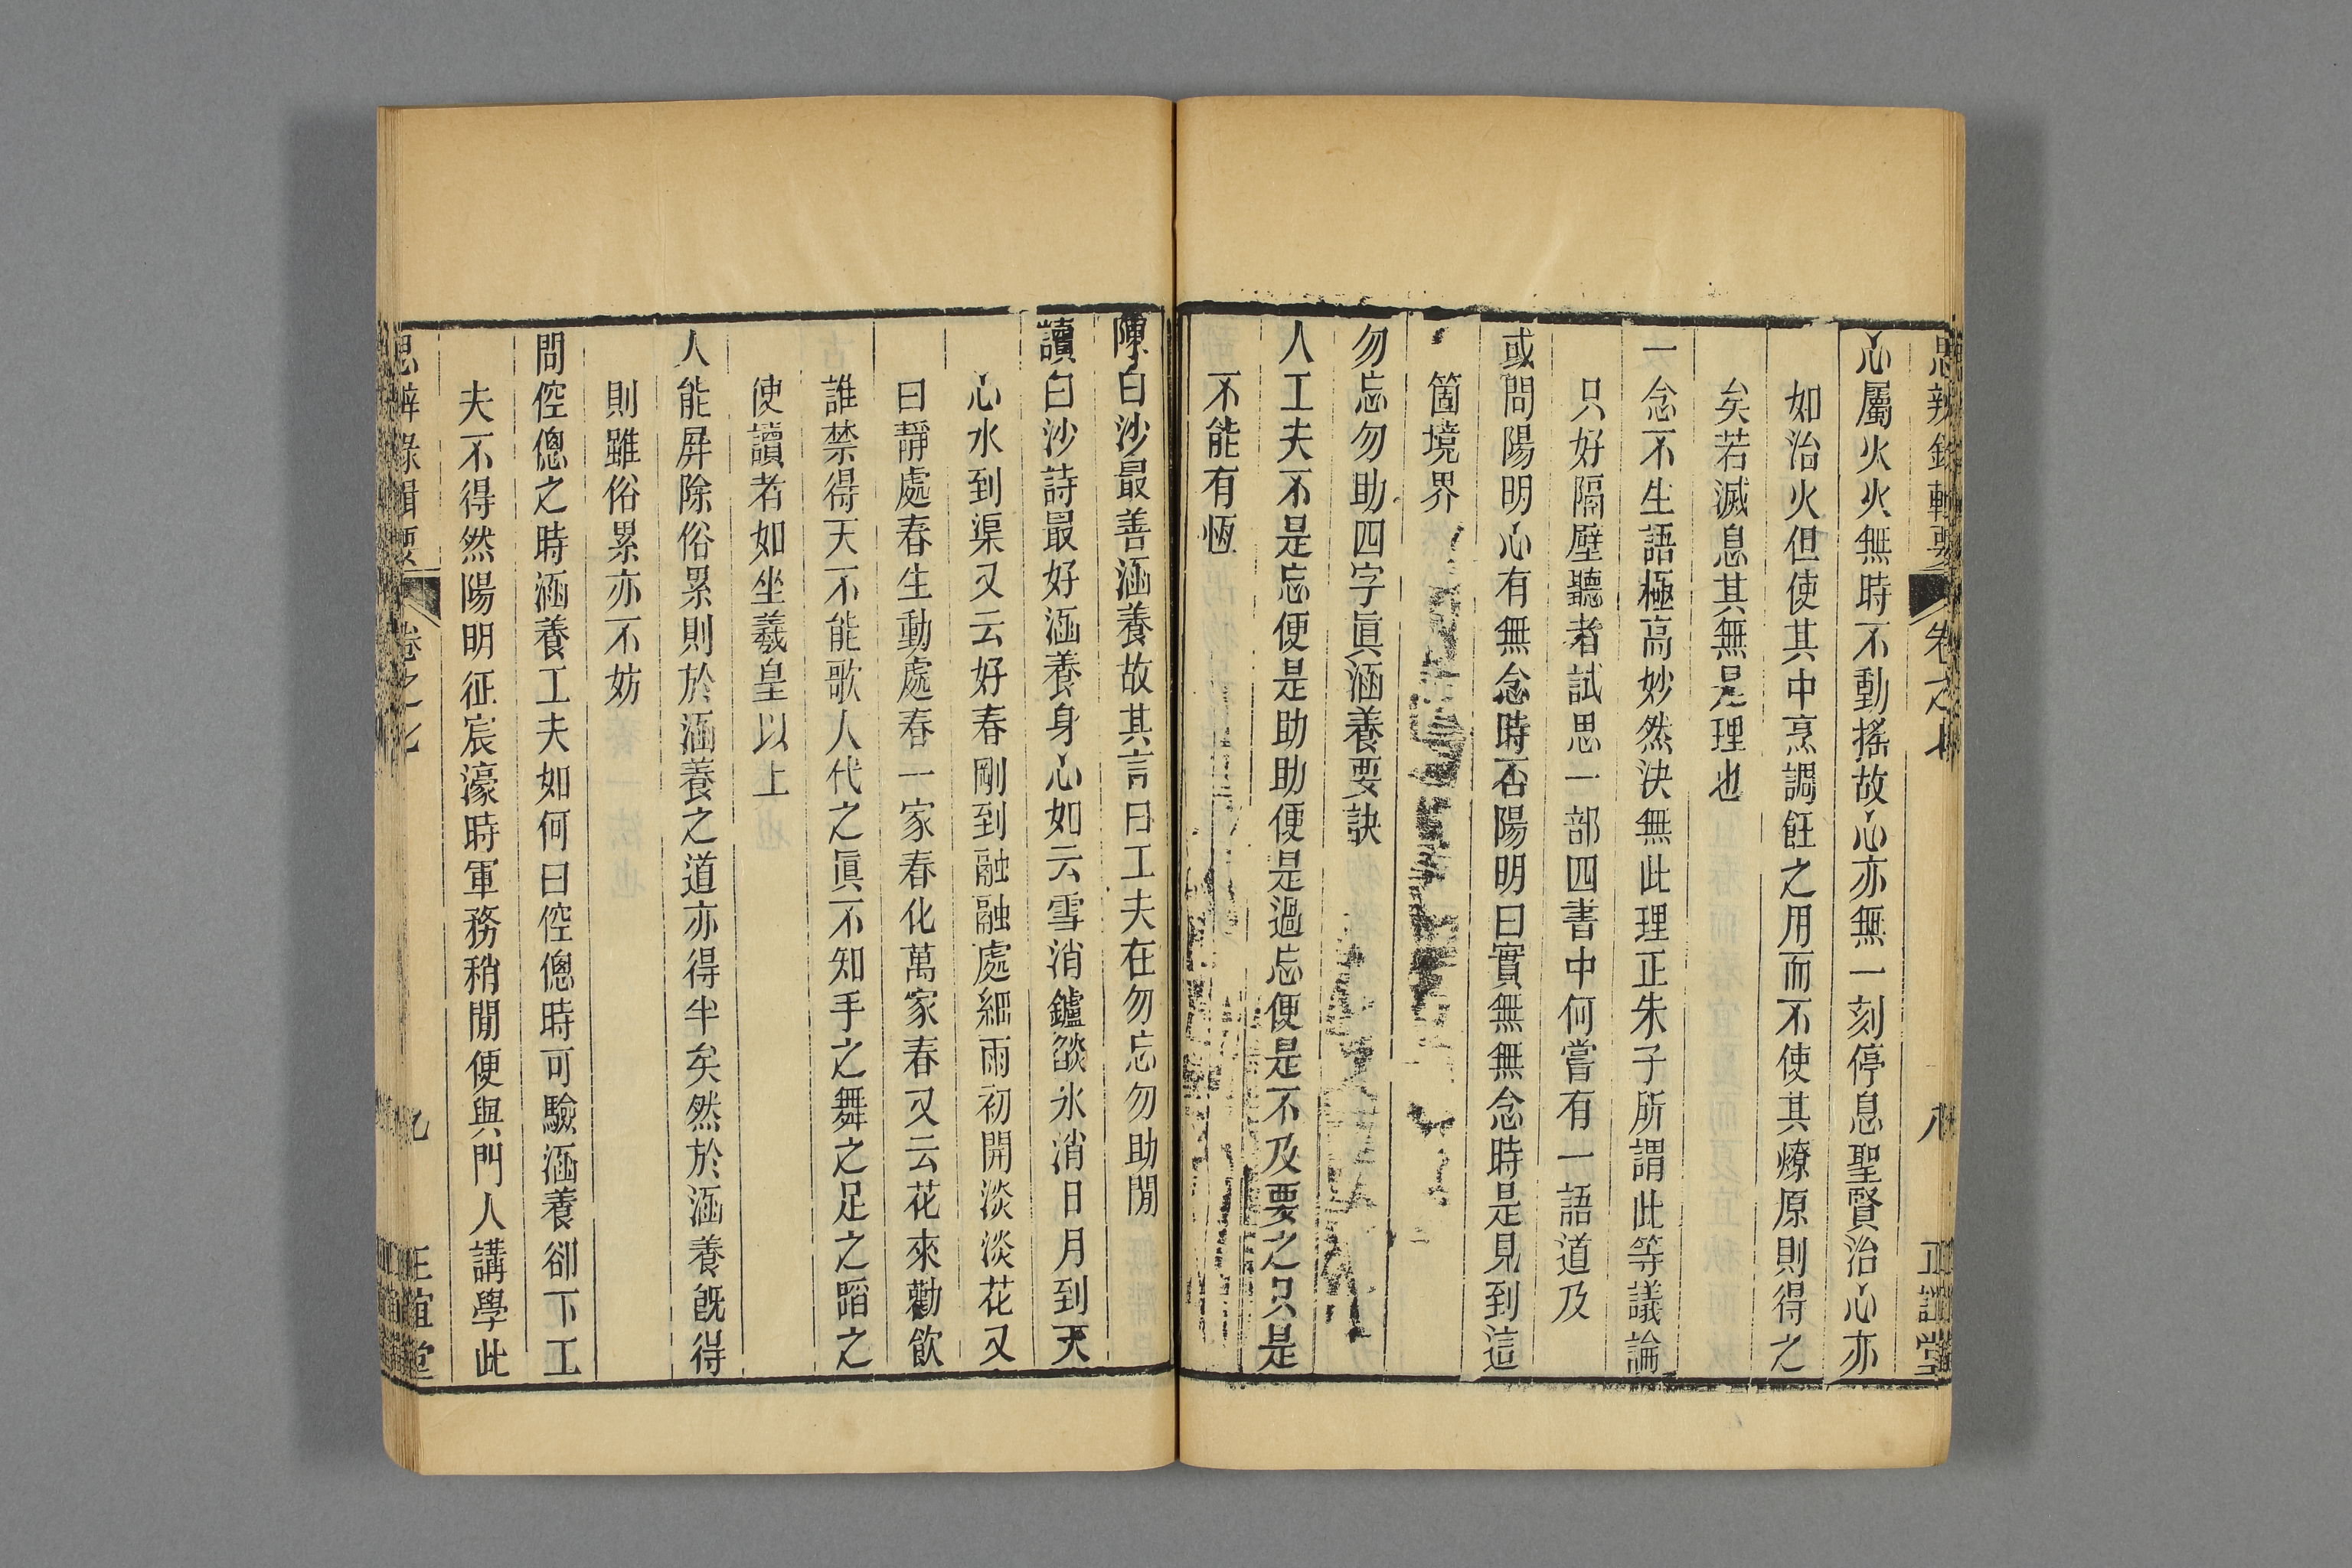 思辨錄輯要 卷之七 八 正誼堂
心屬火火無時不動搖故心亦無一刻停息聖賢治心亦
如治火但使其中烹調飪之用而不使其燎原則得之
矣若滅息其無是理也
一念不生語極高妙然決無此理正朱子所謂此等議論
只好隔壁聽者試思一部四書中何嘗有一語道及
或問陽明心有無念時否陽明曰實無無念時是見到這
箇境界
勿忘勿助四字眞涵養要訣
人工夫不是忘便是助助便是過忘便是不及要之只是
不能有恆
陳白沙最善涵養故其言曰工夫在勿忘勿助閒
讀白沙詩最好涵養身心如云雪消鑪燄冰消日月到天
心水到渠又云好春剛到融融處細雨初開淡淡花又
曰靜處春生動處春一家春化萬家春又云花來勸飲
誰禁得天不能歌人代之眞不知手之舞之足之蹈之
使讀者如坐羲皇以上
人能屛除俗累則於涵養之道亦得半矣然於涵養旣得
則雖俗累亦不妨
問倥傯之時涵養工夫如何曰倥傯時可驗涵養卻下工
夫不得然陽明征宸濠時軍務稍閒便與門人講學此
思辨錄輯要 卷之七 九 正誼堂